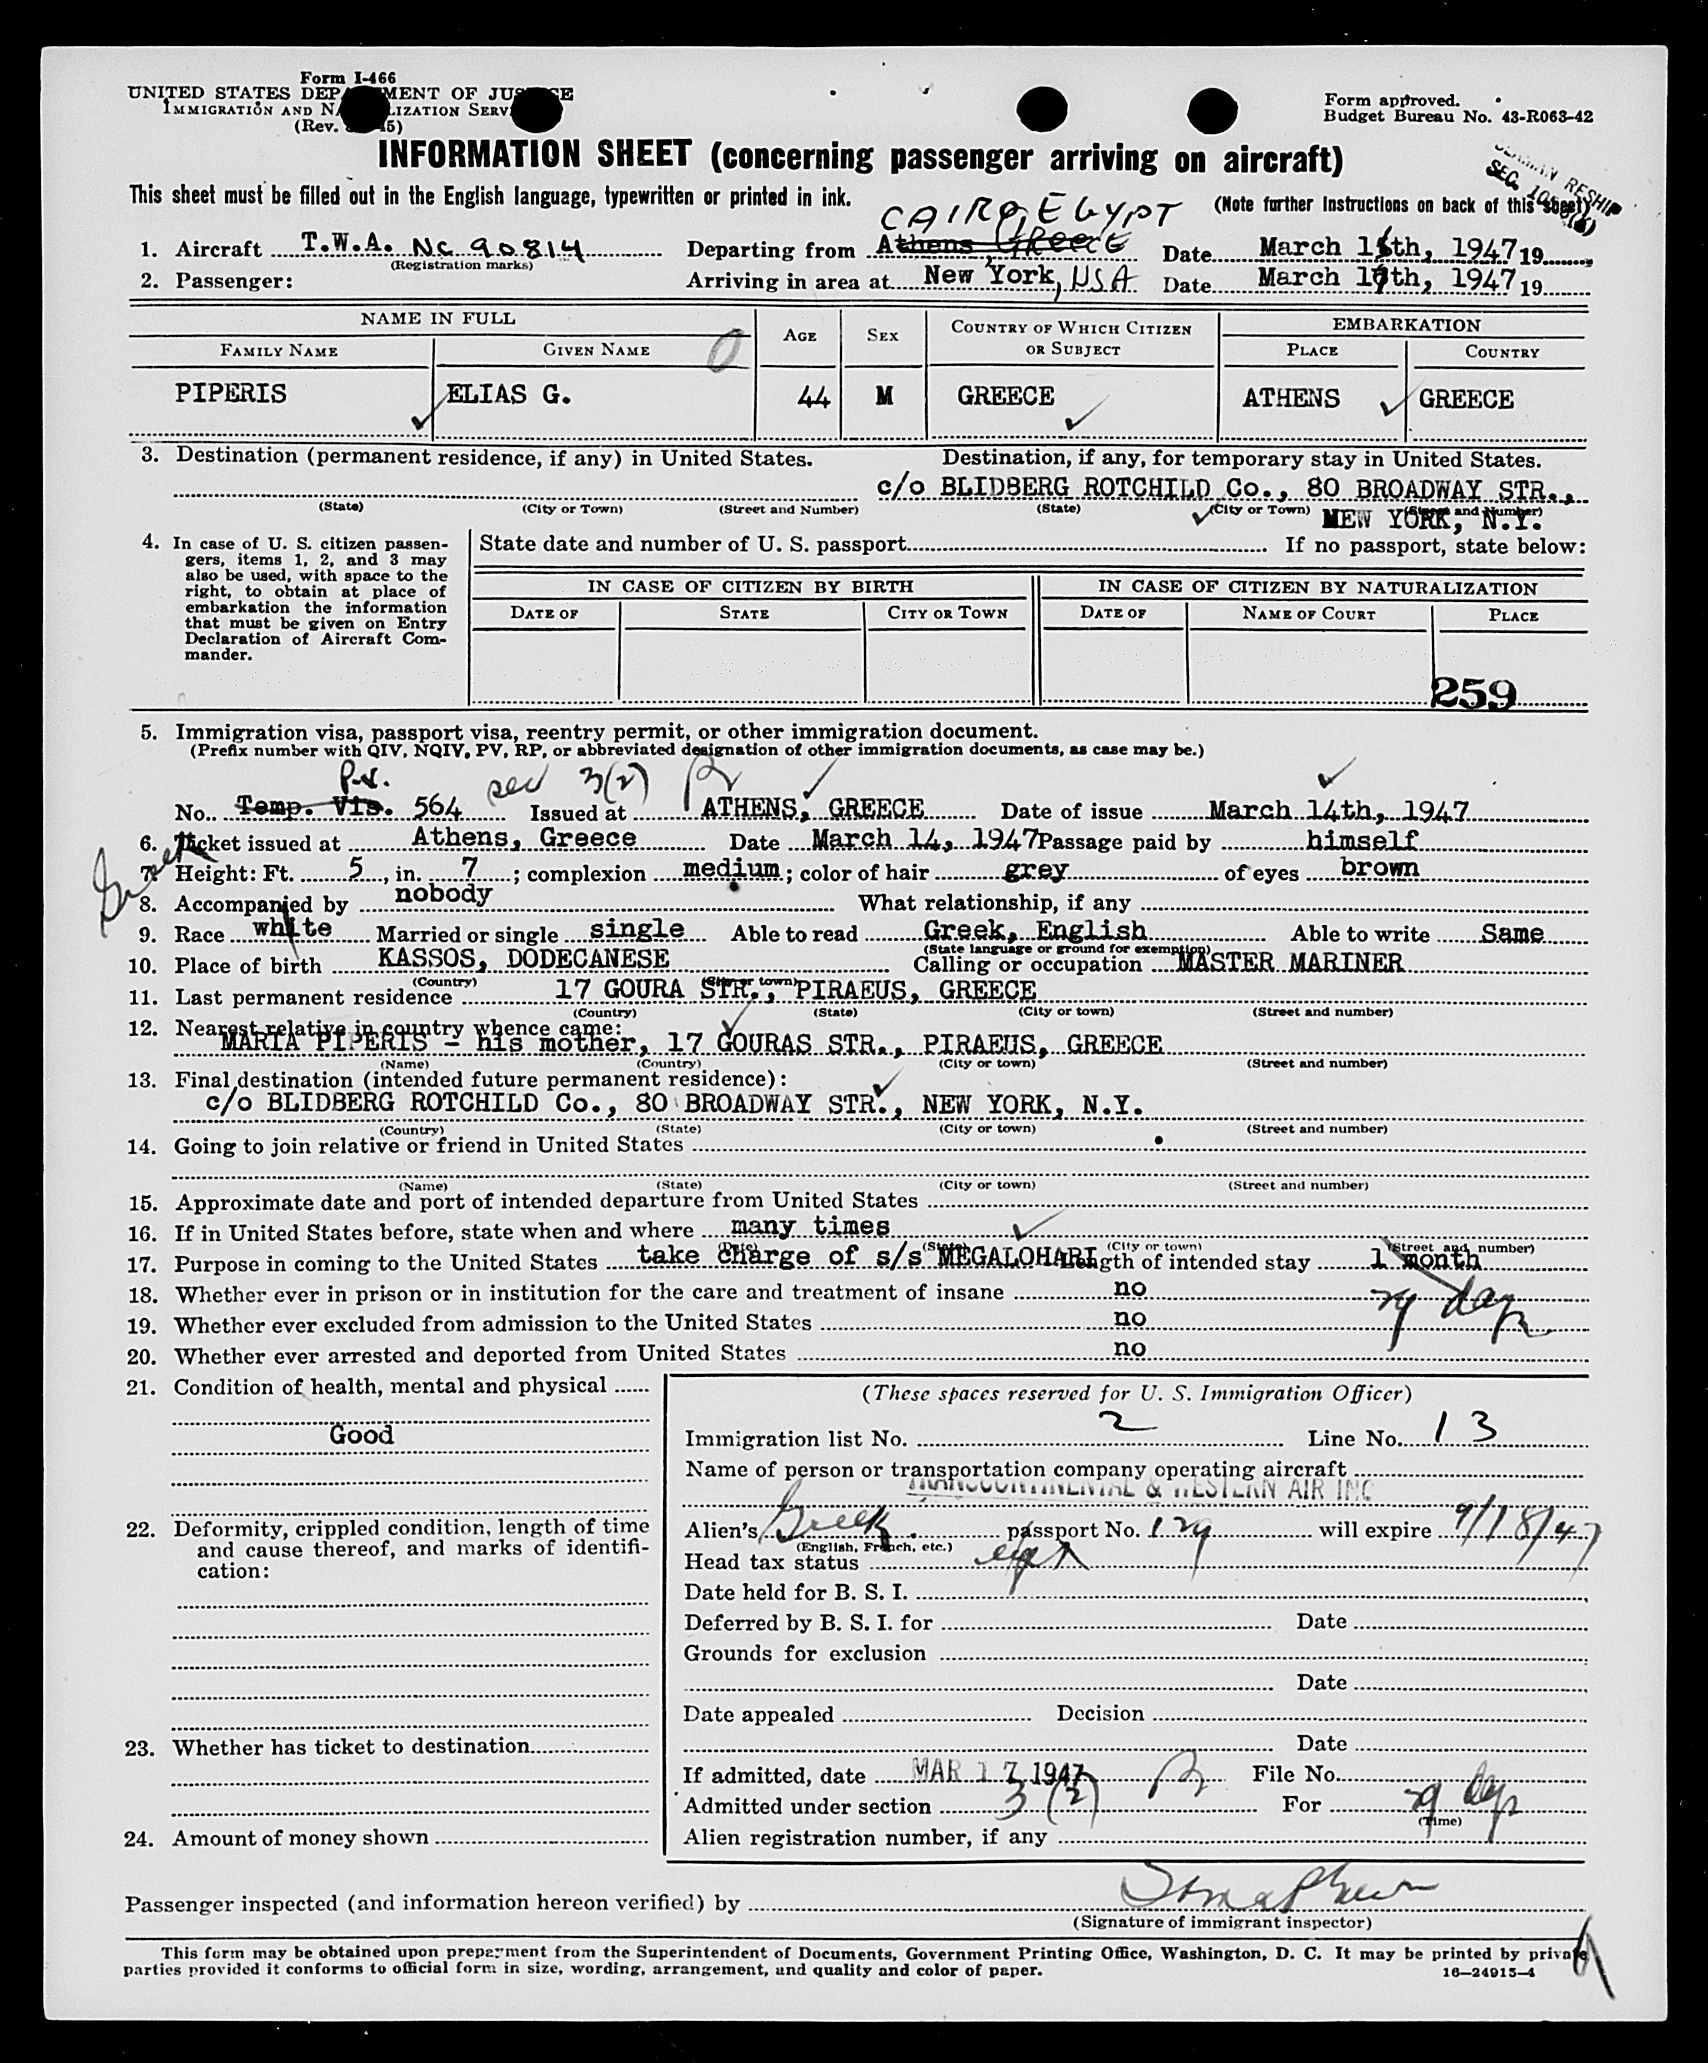 Form I-466
UNITED STATES DEPARTMENT OF JUSTICE
IMMIGRATION AND NATURALIZATION SERVICE
(Rev. 5)
Form approved.
Budget Bureau No. 43-R063-42
INFORMATION SHEET (concerning passenger arriving on aircraft)
SEAMAN RESHIP
SEC.
This sheet must be filled out in the English language, typewritten or printed in ink.
(Note further instructions on back of this sheet)
CAIRO, EGYPT
1. Aircraft T.W.A. NC 90814 Departing from Athens, GREECE Date March 15th, 1947 19
(Registration marks)
2. Passenger: Arriving in area at New York, USA Date March 17th, 1947 19
NAME IN FULL AGE SEX COUNTRY OF WHICH CITIZEN OR SUBJECT EMBARKATION
FAMILY NAME GIVEN NAME PLACE COUNTRY
PIPERIS ELIAS G. 44 M GREECE ATHENS GREECE
3. Destination (permanent residence, if any) in United States. Destination, if any, for temporary stay in United States.
c/o BLIDBERG ROTCHILD Co., 80 BROADWAY STR.,
(State) (City or Town) (Street and Number) (State) (City or Town) (Street and Number)
NEW YORK, N.Y.
4. In case of U. S. citizen passen-
gers, items 1, 2, and 3 may
also be used, with space to the
right, to obtain at place of
embarkation the information
that must be given on Entry
Declaration of Aircraft Com-
mander.
State date and number of U. S. passport If no passport, state below:
IN CASE OF CITIZEN BY BIRTH IN CASE OF CITIZEN BY NATURALIZATION
DATE OF STATE CITY OR TOWN DATE OF NAME OF COURT PLACE
259
5. Immigration visa, passport visa, reentry permit, or other immigration document.
(Prefix number with QIV, NQIV, PV, RP, or abbreviated designation of other immigration documents, as case may be.)
P.V. sec 3(2)
No. Temp. Vis. 564 Issued at ATHENS, GREECE Date of issue March 14th, 1947
6. Ticket issued at Athens, Greece Date March 14, 1947 Passage paid by himself
Greek
7. Height: Ft. 5, in. 7; complexion medium; color of hair grey of eyes brown
8. Accompanied by nobody What relationship, if any
9. Race white Married or single single Able to read Greek, English Able to write Same
(State language or ground for exemption)
10. Place of birth KASSOS, DODECANESE Calling or occupation MASTER MARINER
(Country) (City or town)
11. Last permanent residence 17 GOURA STR., PIRAEUS, GREECE
(Country) (State) (City or town) (Street and number)
12. Nearest relative in country whence came:
MARIA PIPERIS - his mother, 17 GOURAS STR., PIRAEUS, GREECE
(Name) (Country) (City or town) (Street and number)
13. Final destination (intended future permanent residence):
c/o BLIDBERG ROTCHILD Co., 80 BROADWAY STR., NEW YORK, N.Y.
(Country) (State) (City or town) (Street and number)
14. Going to join relative or friend in United States
(Name) (State) (City or town) (Street and number)
15. Approximate date and port of intended departure from United States
16. If in United States before, state when and where many times
(Date) (State) (City or town) (Street and number)
17. Purpose in coming to the United States take charge of s/s MEGALOHARI Length of intended stay 1 month
29 days
18. Whether ever in prison or in institution for the care and treatment of insane no
19. Whether ever excluded from admission to the United States no
20. Whether ever arrested and deported from United States no
21. Condition of health, mental and physical
Good
22. Deformity, crippled condition, length of time
and cause thereof, and marks of identifi-
cation:
23. Whether has ticket to destination
24. Amount of money shown
(These spaces reserved for U. S. Immigration Officer)
Immigration list No. 2 Line No. 13
Name of person or transportation company operating aircraft
TRANSCONTINENTAL & WESTERN AIR INC
Alien's Greek passport No. 129 will expire 9/18/47
(English, French, etc.)
Head tax status
Date held for B. S. I.
Deferred by B. S. I. for Date
Grounds for exclusion
Date
Date appealed Decision
Date
If admitted, date MAR 17 1947 File No.
Admitted under section 3(2) For 29 days
(Time)
Alien registration number, if any
Passenger inspected (and information hereon verified) by
(Signature of immigrant inspector)
This form may be obtained upon prepayment from the Superintendent of Documents, Government Printing Office, Washington, D. C. It may be printed by private
parties provided it conforms to official form in size, wording, arrangement, and quality and color of paper.
16—24915-4